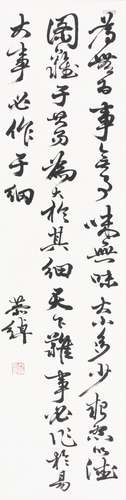 為無為事無事味無味大小多少報怨以德
圖難于其易為大於其細天下難事必作於易
大事必作于細
恭綽